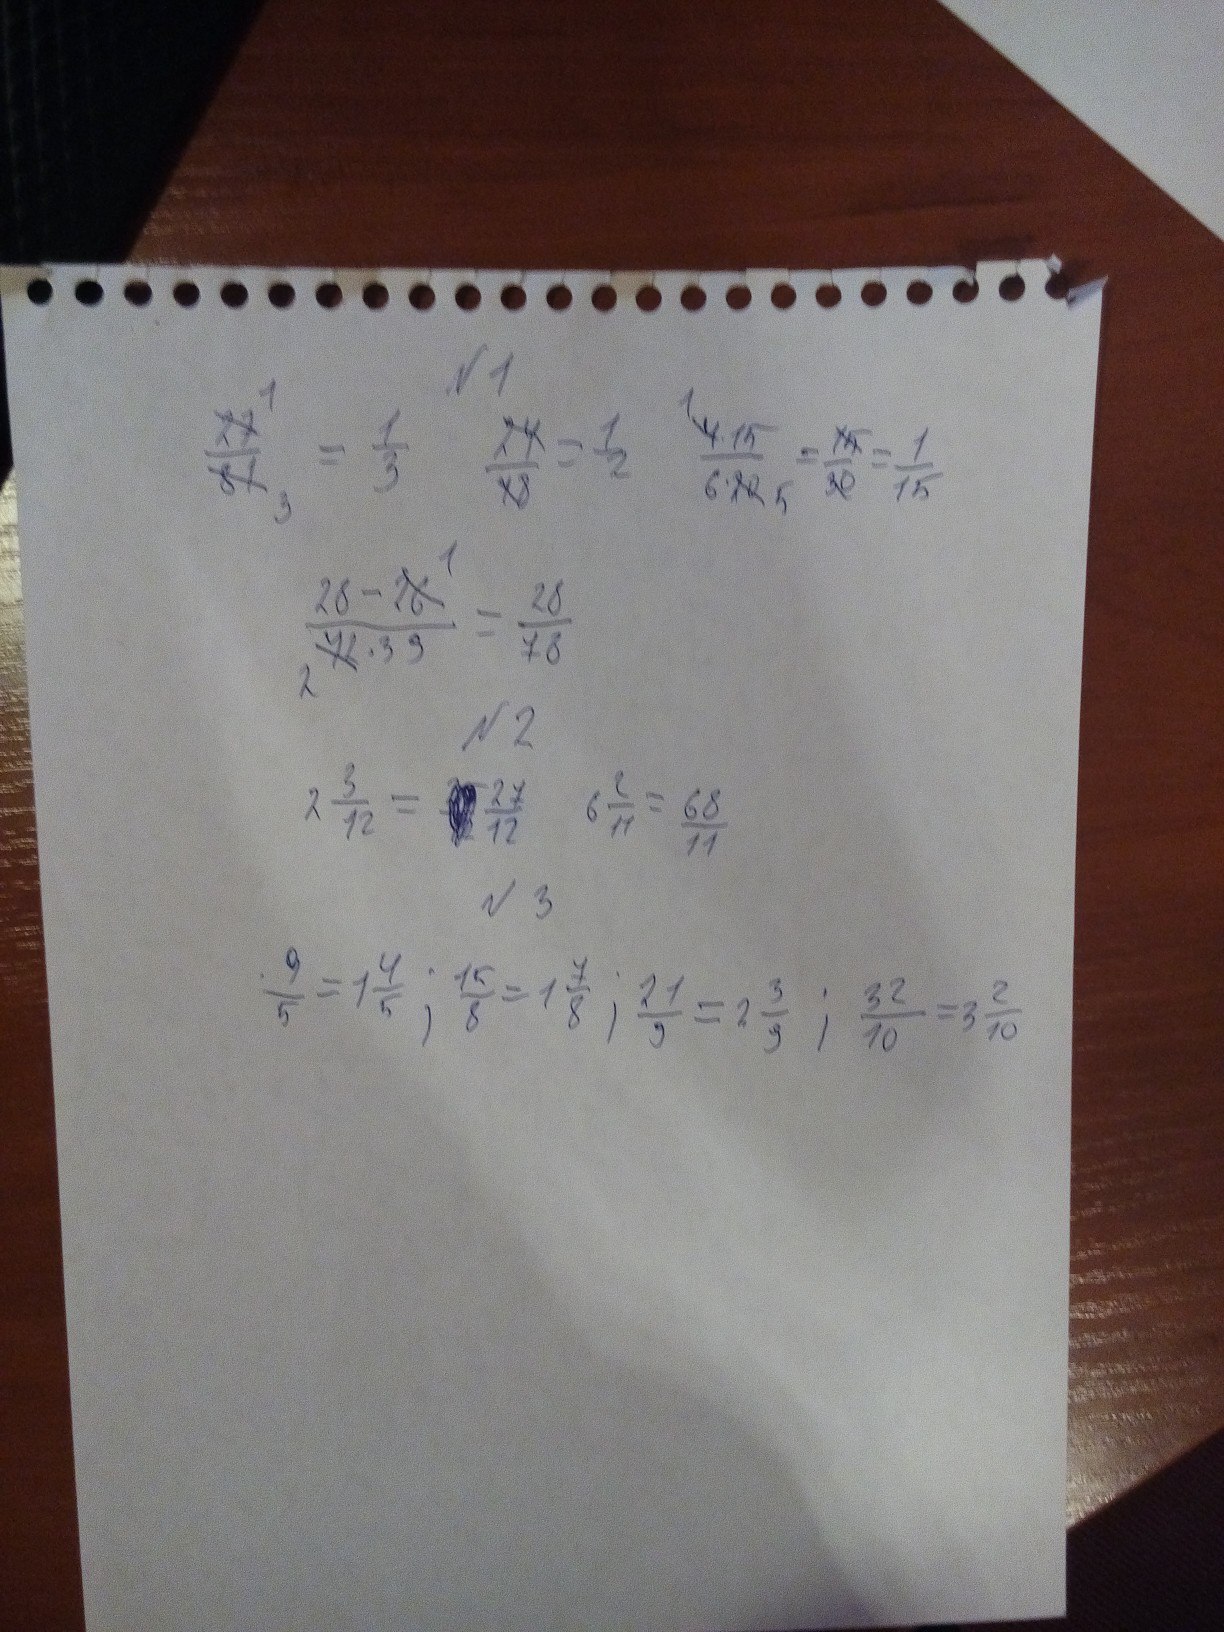 №1
27/81 = 1/3 24/48 = 1/2 4·15/6·20 = 15/30 = 1/15
28-26/72·39 = 28/78
№2
2 3/12 = 27/12 6 2/11 = 68/11
№3
9/5 = 1 4/5 ; 15/8 = 1 7/8 ; 21/9 = 2 3/9 ; 32/10 = 3 2/10